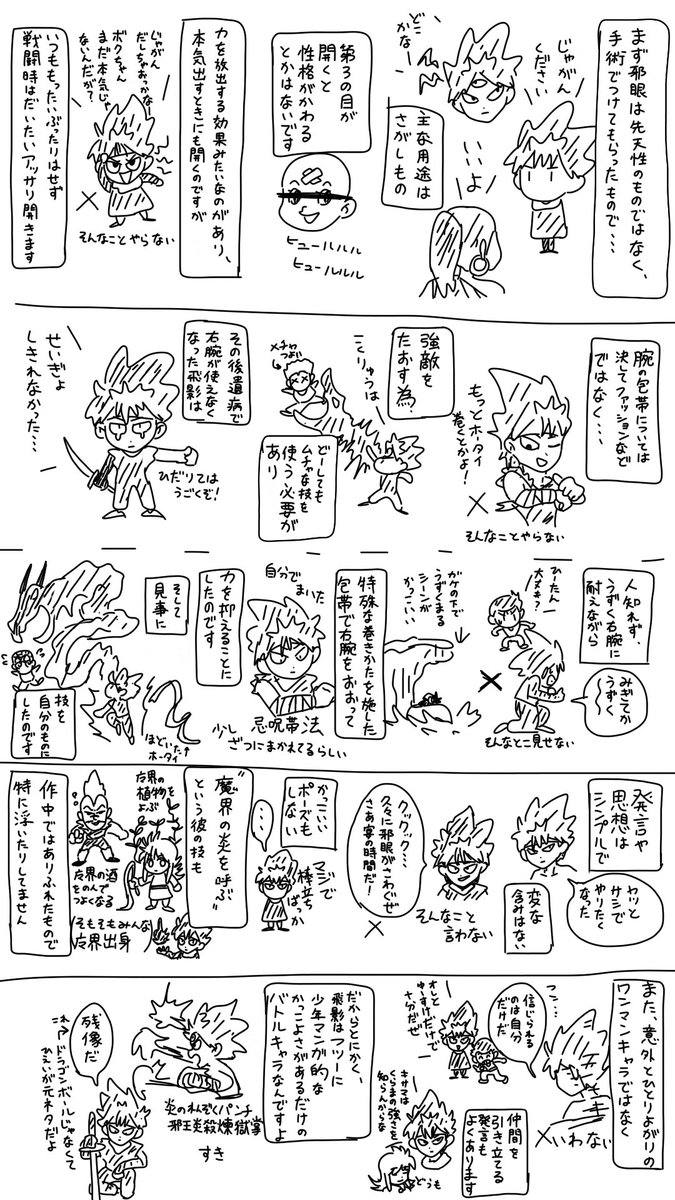 まず邪眼は先天性のものではなく、
手術でつけてもらったもので…
じゃがん
ください
どこ
かな
いいよ
主な用途は
さがしもの
第3の目が
開くと
性格がかわる
とかはないです
ヒュールルル
ヒュールルル
力を放出する効果みたいなのがあり、
本気出すときにも開くのですが
じゃがん
だしちゃおっかな〜
ボクちゃん
まだ本気じゃ
ないんだが?
×
そんなことやらない
いつももったいぶったりはせず
戦闘時はだいたいアッサリ開きます
腕の包帯については
決してファッションなど
ではなく…
もっとホータイ
巻くとかよ!
×
そんなことやらない
強敵を
たおす為、
こくりゅうは
メチャ
つよい
どーしても
ムチャな技を
使う必要が
あり
その後遺病で
右腕が使えなく
なった飛影は
ひだりては
うごくぞ!
せいぎょ
しきれなかった…
人知れず、
うずく右腕に
耐えながら
みぎてが
うずく
ひーたん
大丈夫?
×
そんなとこ見せない
ガケの下で
うずくまる
シーンが
かっこいい
特殊な巻きかたを施した
包帯で右腕をおおって
自分で
まいた
忌呪帯法
少し
ざつにまかれてるらしい
力を抑えることに
したのです
そして
見事に
ほどいた
ホータイ
技を
自分のものに
したのです
発言や
思想は
シンプルで
ヤッと
サシで
やりたく
なった
変な
含みはない
クックック…
久々に邪眼がさわぐぜ
さあ宴の時間だ!
×
そんなこと
言わない
かっこいい
ポーズも
しない
…
マジで
棒立ち
ばっか
“魔界の炎を呼ぶ”
という彼の技も
魔界の
植物を
よぶ
魔界の酒
をのんで
つよくなる
そもそもみんな
魔界出身
作中ではありふれたもので
特に浮いたりしてません
また、意外とひとりよがりの
ワンマンキャラではなく
フン…
信じられる
のは自分
だけだ
×いわない
オレと
ゆーすけだけで
十分だぜ
仲間を
引き立てる
発言も
よくあります
キサマは
くらまの強さを
知らんからな
どうも
だからとにかく、
飛影はフツーに
少年マンガ的な
かっこよさがあるだけの
バトルキャラなんですよ
炎のれんぞくパンチ
邪王炎殺煉獄掌
すき
残像だ
これ
ドラゴンボールじゃなくて
ひえいが元ネタだよ